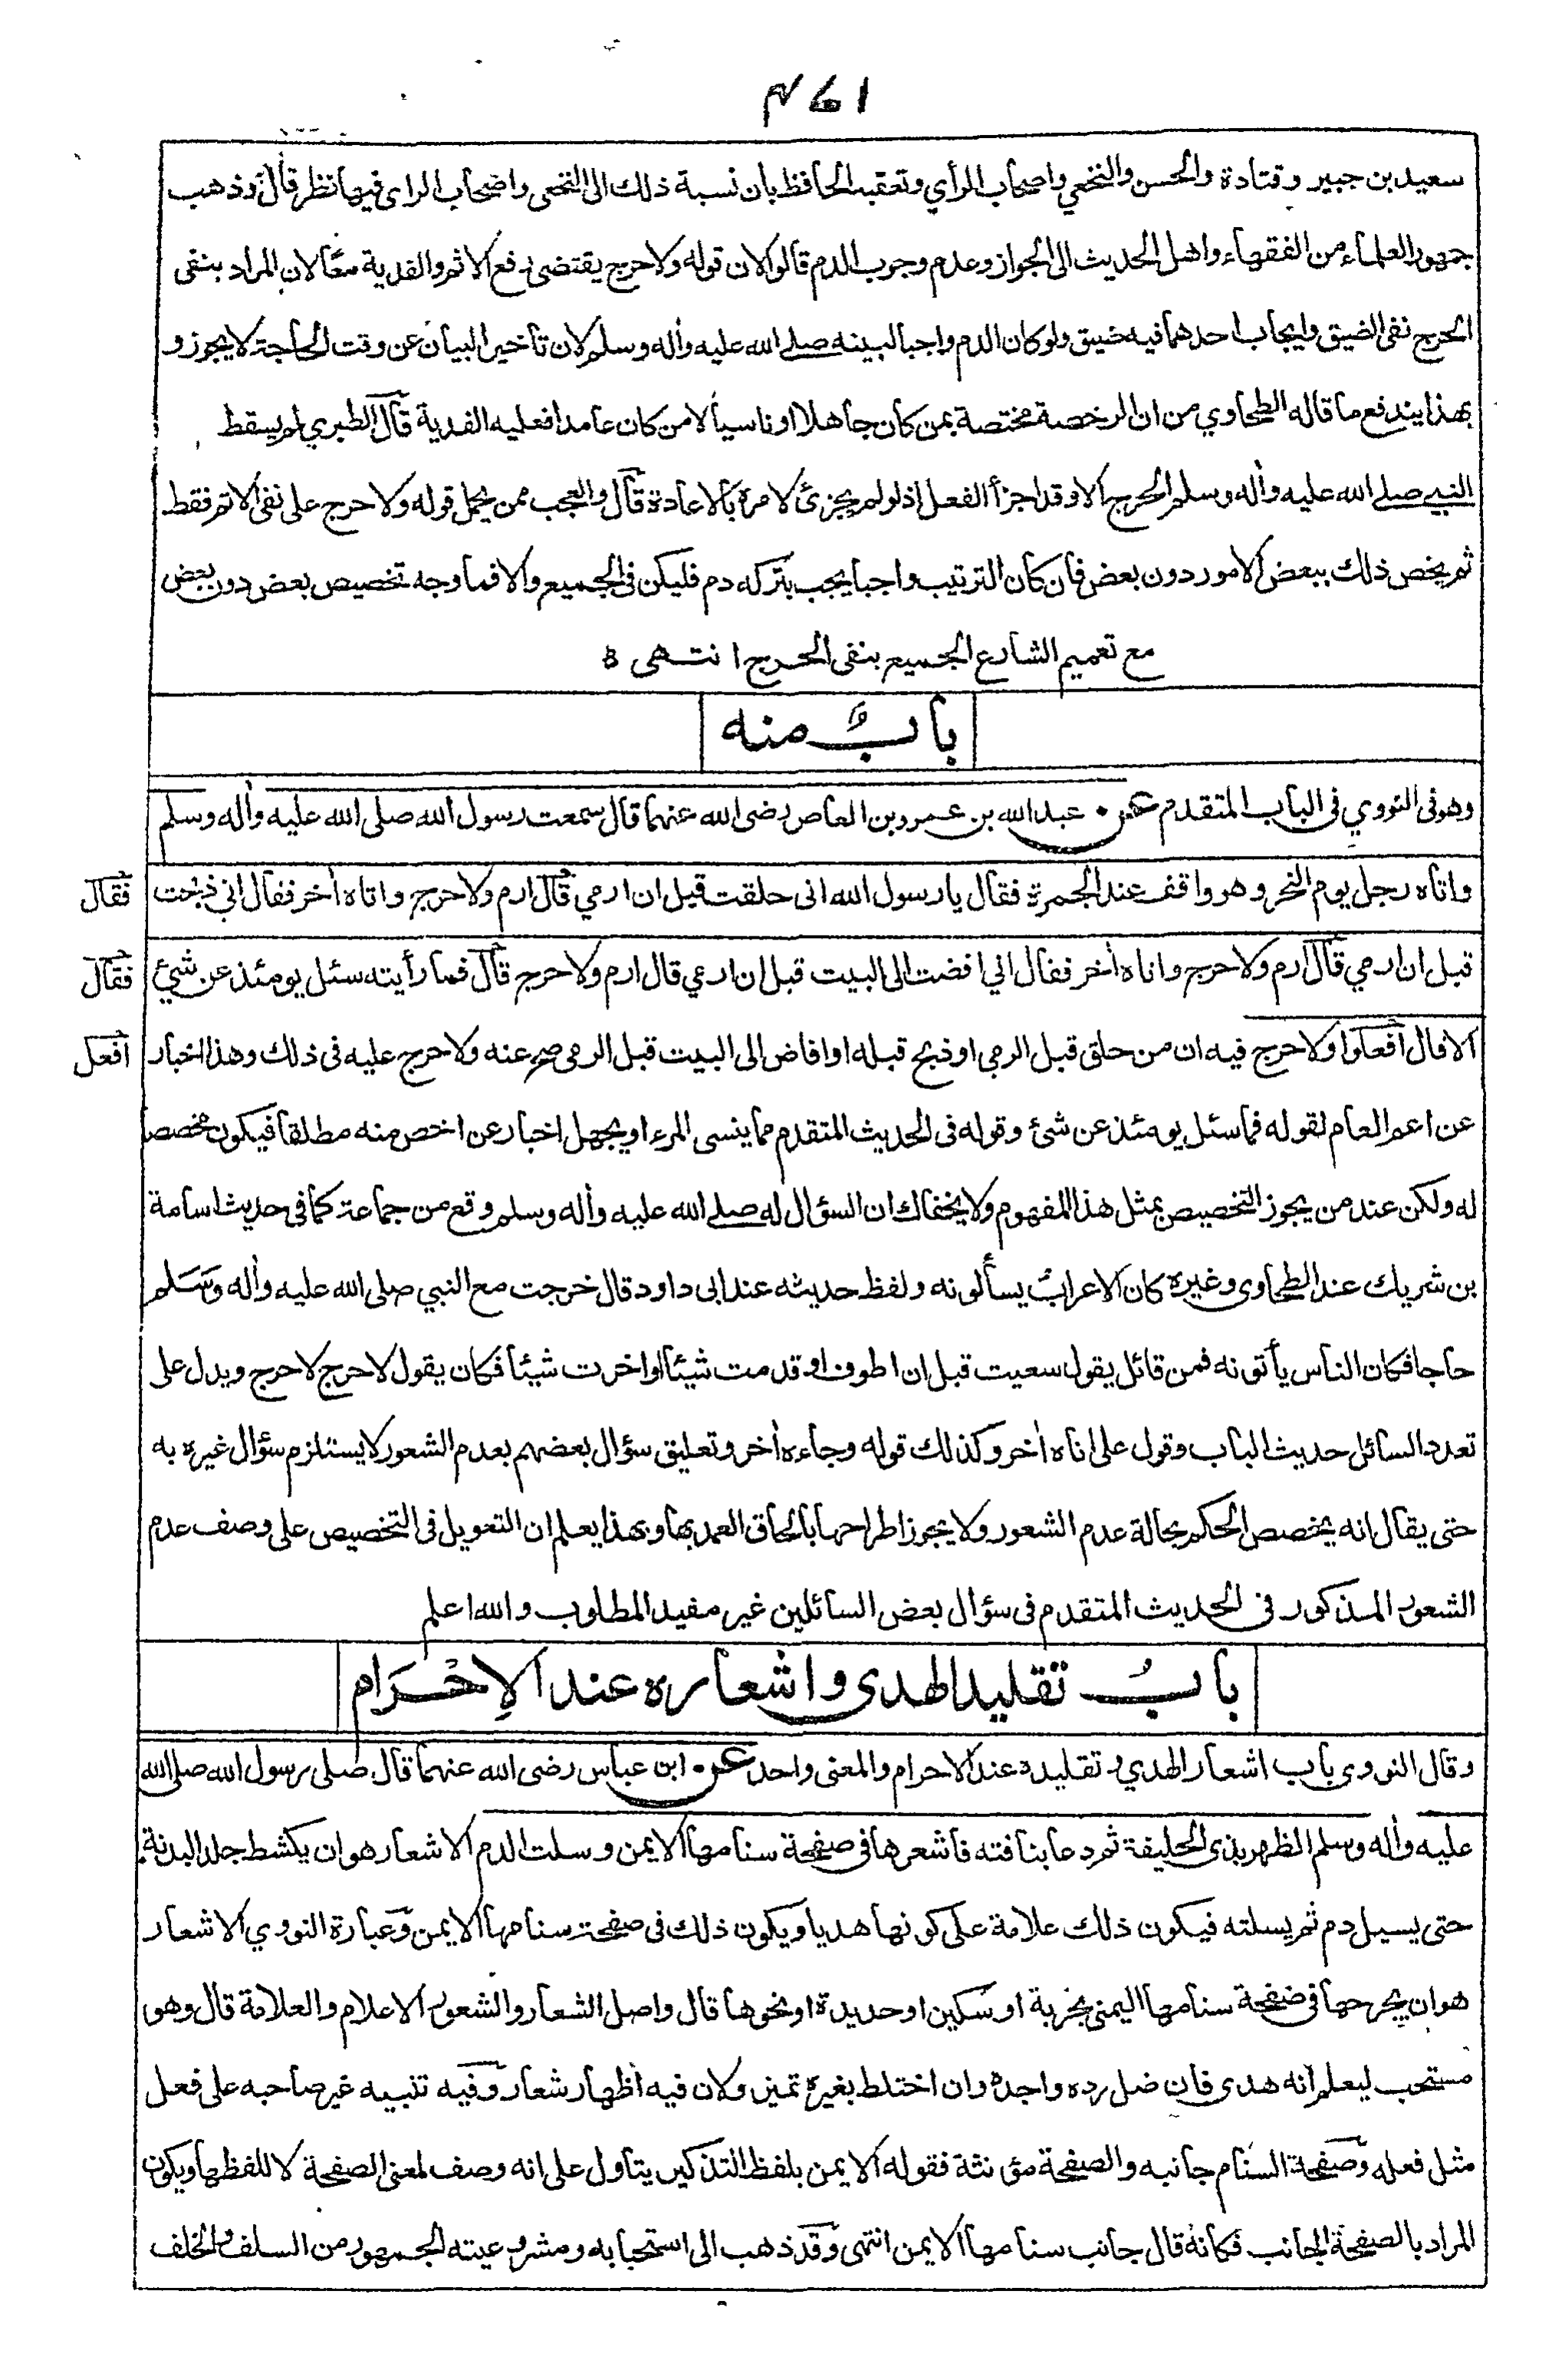 ٤٦١
سعيد بن جبير وقتادة والحسن والنخعي واصحاب الرأي وتعقبه الحافظ بان نسبة ذلك الى النخعى واصحاب الراى فيها نظر قال وذهب
جمهور العلماء من الفقهاء واهل الحديث الى الجواز وعدم وجوب الدم قالوا لان قوله ولا حرج يقتضى رفع الاثم والفدية معًا لان المراد بنفى
الحرج نفى الضيق وايجاب احدهما فيه ضيق ولو كان الدم واجبا لبينه صلى الله عليه وأله وسلم لان تأخير البيان عن وقت الحاجة لا يجوز و
بهذا يندفع ما قاله الطحاوي من ان الرخصة مختصة بمن كان جاهلا او ناسيا لا من كان عامدا فعليه الفدية قال الطبري لم يسقط
النبى صلى الله عليه وأله وسلم الحرج الا وقد اجزأ الفعل اذ لو لم يجزئ لامره بالاعادة قال والعجب ممن يحمل قوله ولا حرج على نفى الاثم فقط
ثم يخص ذلك ببعض الامور دون بعض فان كان الترتيب واجبا يجب بتركه دم فليكن فى الجميع والا فما وجه تخصيص بعض دون بعض
مع تعميم الشارع الجميع بنفى الحرج انتهى
بابٌ منه
وهو فى النووي فى الباب المتقدم عن عبد الله بن عمرو بن العاص رضى الله عنهما قال سمعت رسول الله صلى الله عليه وأله وسلم
واتاه رجل يوم النحر وهو واقف عند الجمرة فقال يا رسول الله انى حلقت قبل ان ارمي قال ارم ولا حرج واتاه أخر فقال اني ذبحت
فقال
قبل ان ارمي قال ارم ولا حرج واتاه أخر فقال اني افضت الى البيت قبل ان ارمي قال ارم ولا حرج قال فما رأيته سئل يومئذ عن شئ
فقال
الا قال افعلوا ولا حرج فيه ان من حلق قبل الرمي او ذبح قبله او افاض الى البيت قبل الرمى صح عنه ولا حرج عليه فى ذلك وهذا اخبار
افعل
عن اعم العام لقوله فما سئل يومئذ عن شئ وقوله فى الحديث المتقدم مما ينسى المرء او يجهل اخبار عن اخص منه مطلقا فيكون مخصصا
له ولكن عند من يجوز التخصيص بمثل هذا المفهوم ولا يخفاك ان السؤال له صلى الله عليه وأله وسلم وقع من جماعة كما فى حديث اسامة
بن شريك عند الطحاوى وغيره كان الاعراب يسألونه ولفظ حديثه عند ابى داود قال خرجت مع النبي صلى الله عليه وأله وسلم
حاجا فكان الناس يأتونه فمن قائل يقول سعيت قبل ان اطوف او قدمت شيئا او اخرت شيئا فكان يقول لا حرج لا حرج ويدل على
تعدد السائل حديث الباب وقول على اتاه أخر وكذلك قوله وجاءه أخر وتعليق سؤال بعضهم بعدم الشعور لا يستلزم سؤال غيره به
حتى يقال انه يخصص الحكم بحالة عدم الشعور ولا يجوز اطراحها بالحاق العمد بها وبهذا يعلم ان التعويل فى التخصيص على وصف عدم
الشعور المذكور فى الحديث المتقدم فى سؤال بعض السائلين غير مفيد المطلوب والله اعلم
بابُ تقليد الهدى واشعاره عند الاِحْرَام
وقال النووى باب اشعار الهدي وتقليده عند الاحرام والمعنى واحد عن ابن عباس رضى الله عنهما قال صلى رسول الله صلى الله
عليه وأله وسلم الظهر بذى الحليفة ثم دعا بناقته فأشعرها فى صفحة سنامها الايمن وسلت الدم الاشعار هو ان يكشط جلد البدنة
حتى يسيل دم ثم يسلته فيكون ذلك علامة على كونها هديا ويكون ذلك فى صفحة سنامها الايمن وعبارة النووي الاشعار
هو ان يجرحها فى صفحة سنامها اليمنى بحربة او سكين او حديدة او نحوها قال واصل الشعار والشعور الاعلام والعلامة قال وهو
مستحب ليعلم انه هدى فان ضل رده واجده وان اختلط بغيره تميز ولان فيه اظهار شعار وفيه تنبيه غير صاحبه على فعل
مثل فعله وصفحة السنام جانبه والصفحة مؤنثة فقوله الايمن بلفظ التذكير يتاول على انه وصف لمعنى الصفحة لا للفظها ويكون
المراد بالصفحة الجانب فكانه قال جانب سنامها الايمن انتهى وقد ذهب الى استحبابه ومشروعيته الجمهور من السلف والخلف